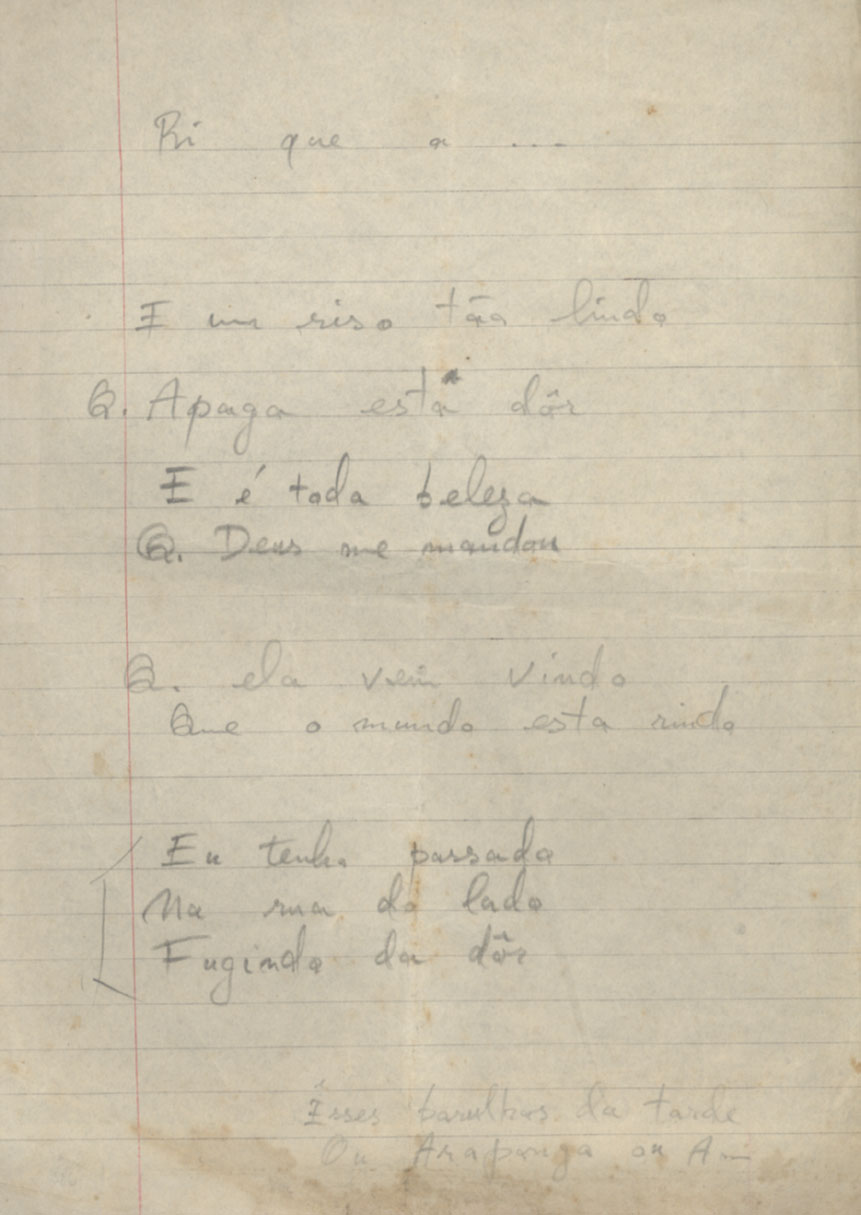 Ri que a ...
E um riso tão lindo
Q. Apaga está dôr
E é toda beleza
Q. Deus me mandou
Q. ela vem vindo
Que o mundo esta rindo
Eu tenho passado
Na rua do lado
Fugindo da dôr
Êsses barulhos da tarde
Ou Araponga ou